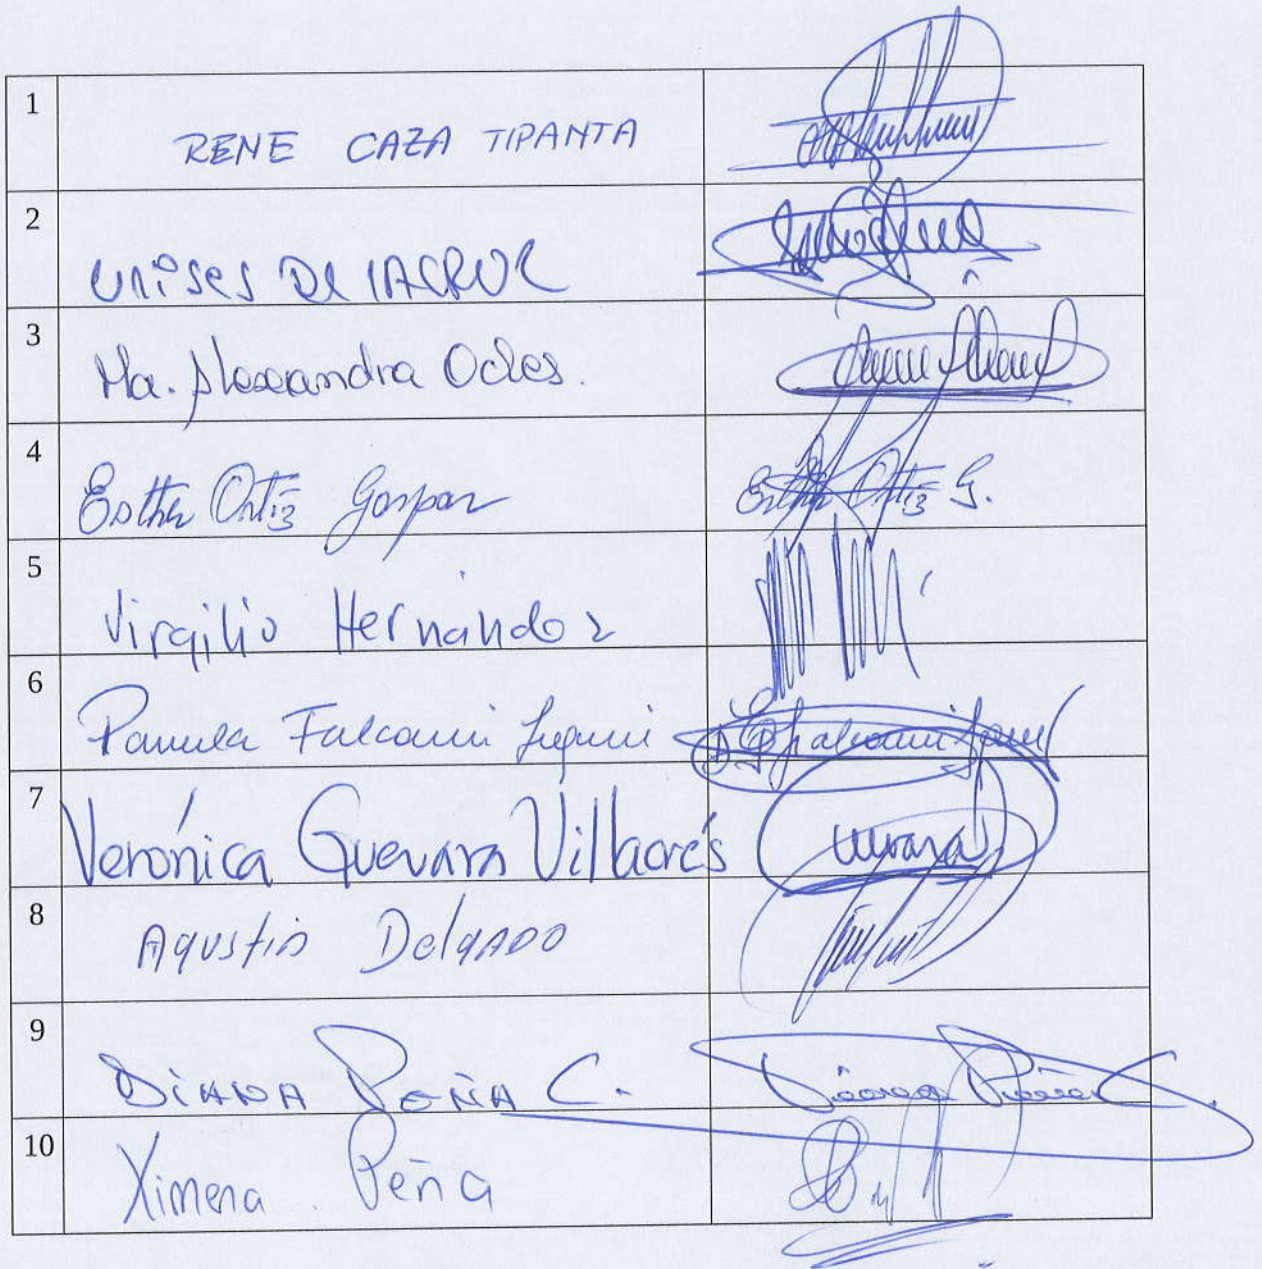 1 RENE CAZA TIPANTA
2 Ulises De lACRUZ
3 Ma. Alexandra Ocles.
4 Esther Ortiz Gaspar Esther Ortiz G.
5 Virgilio Hernández
6 Pamela Falconi
7 Verónica Guevara Villacrés
8 Agustin Delgado
9 DIANA PEÑA C. Diana Peña C.
10 Ximena Peña